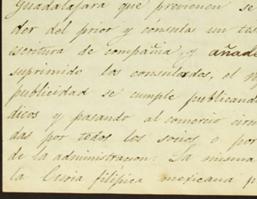 Guadalajara que previenen se
der del prior y cónsules un tes
escritura de compañia, y añade
suprimido los consulados, el
publicidad se cumple publicando
dicos y pasando al comercio circu
das por todos los socios o por
de la administracion. La misma
la Curia filípica mexicana p